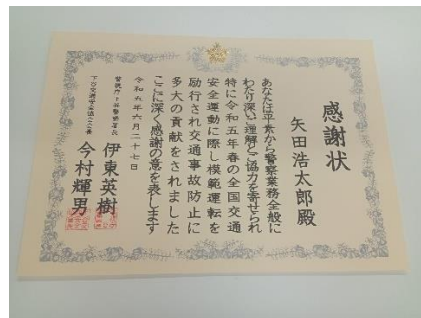 感謝状
矢田浩太郎殿
あなたは平素から警察業務全般に
わたり深いご理解とご協力を寄せられ
特に令和五年春の全国交通
安全運動に際し模範運転を
励行され交通事故防止に
多大の貢献をされました
ここに深く感謝の意を表します
令和五年六月二十七日
警視庁下谷警察署長
伊東英樹
下谷交通安全協会会長
今村輝男